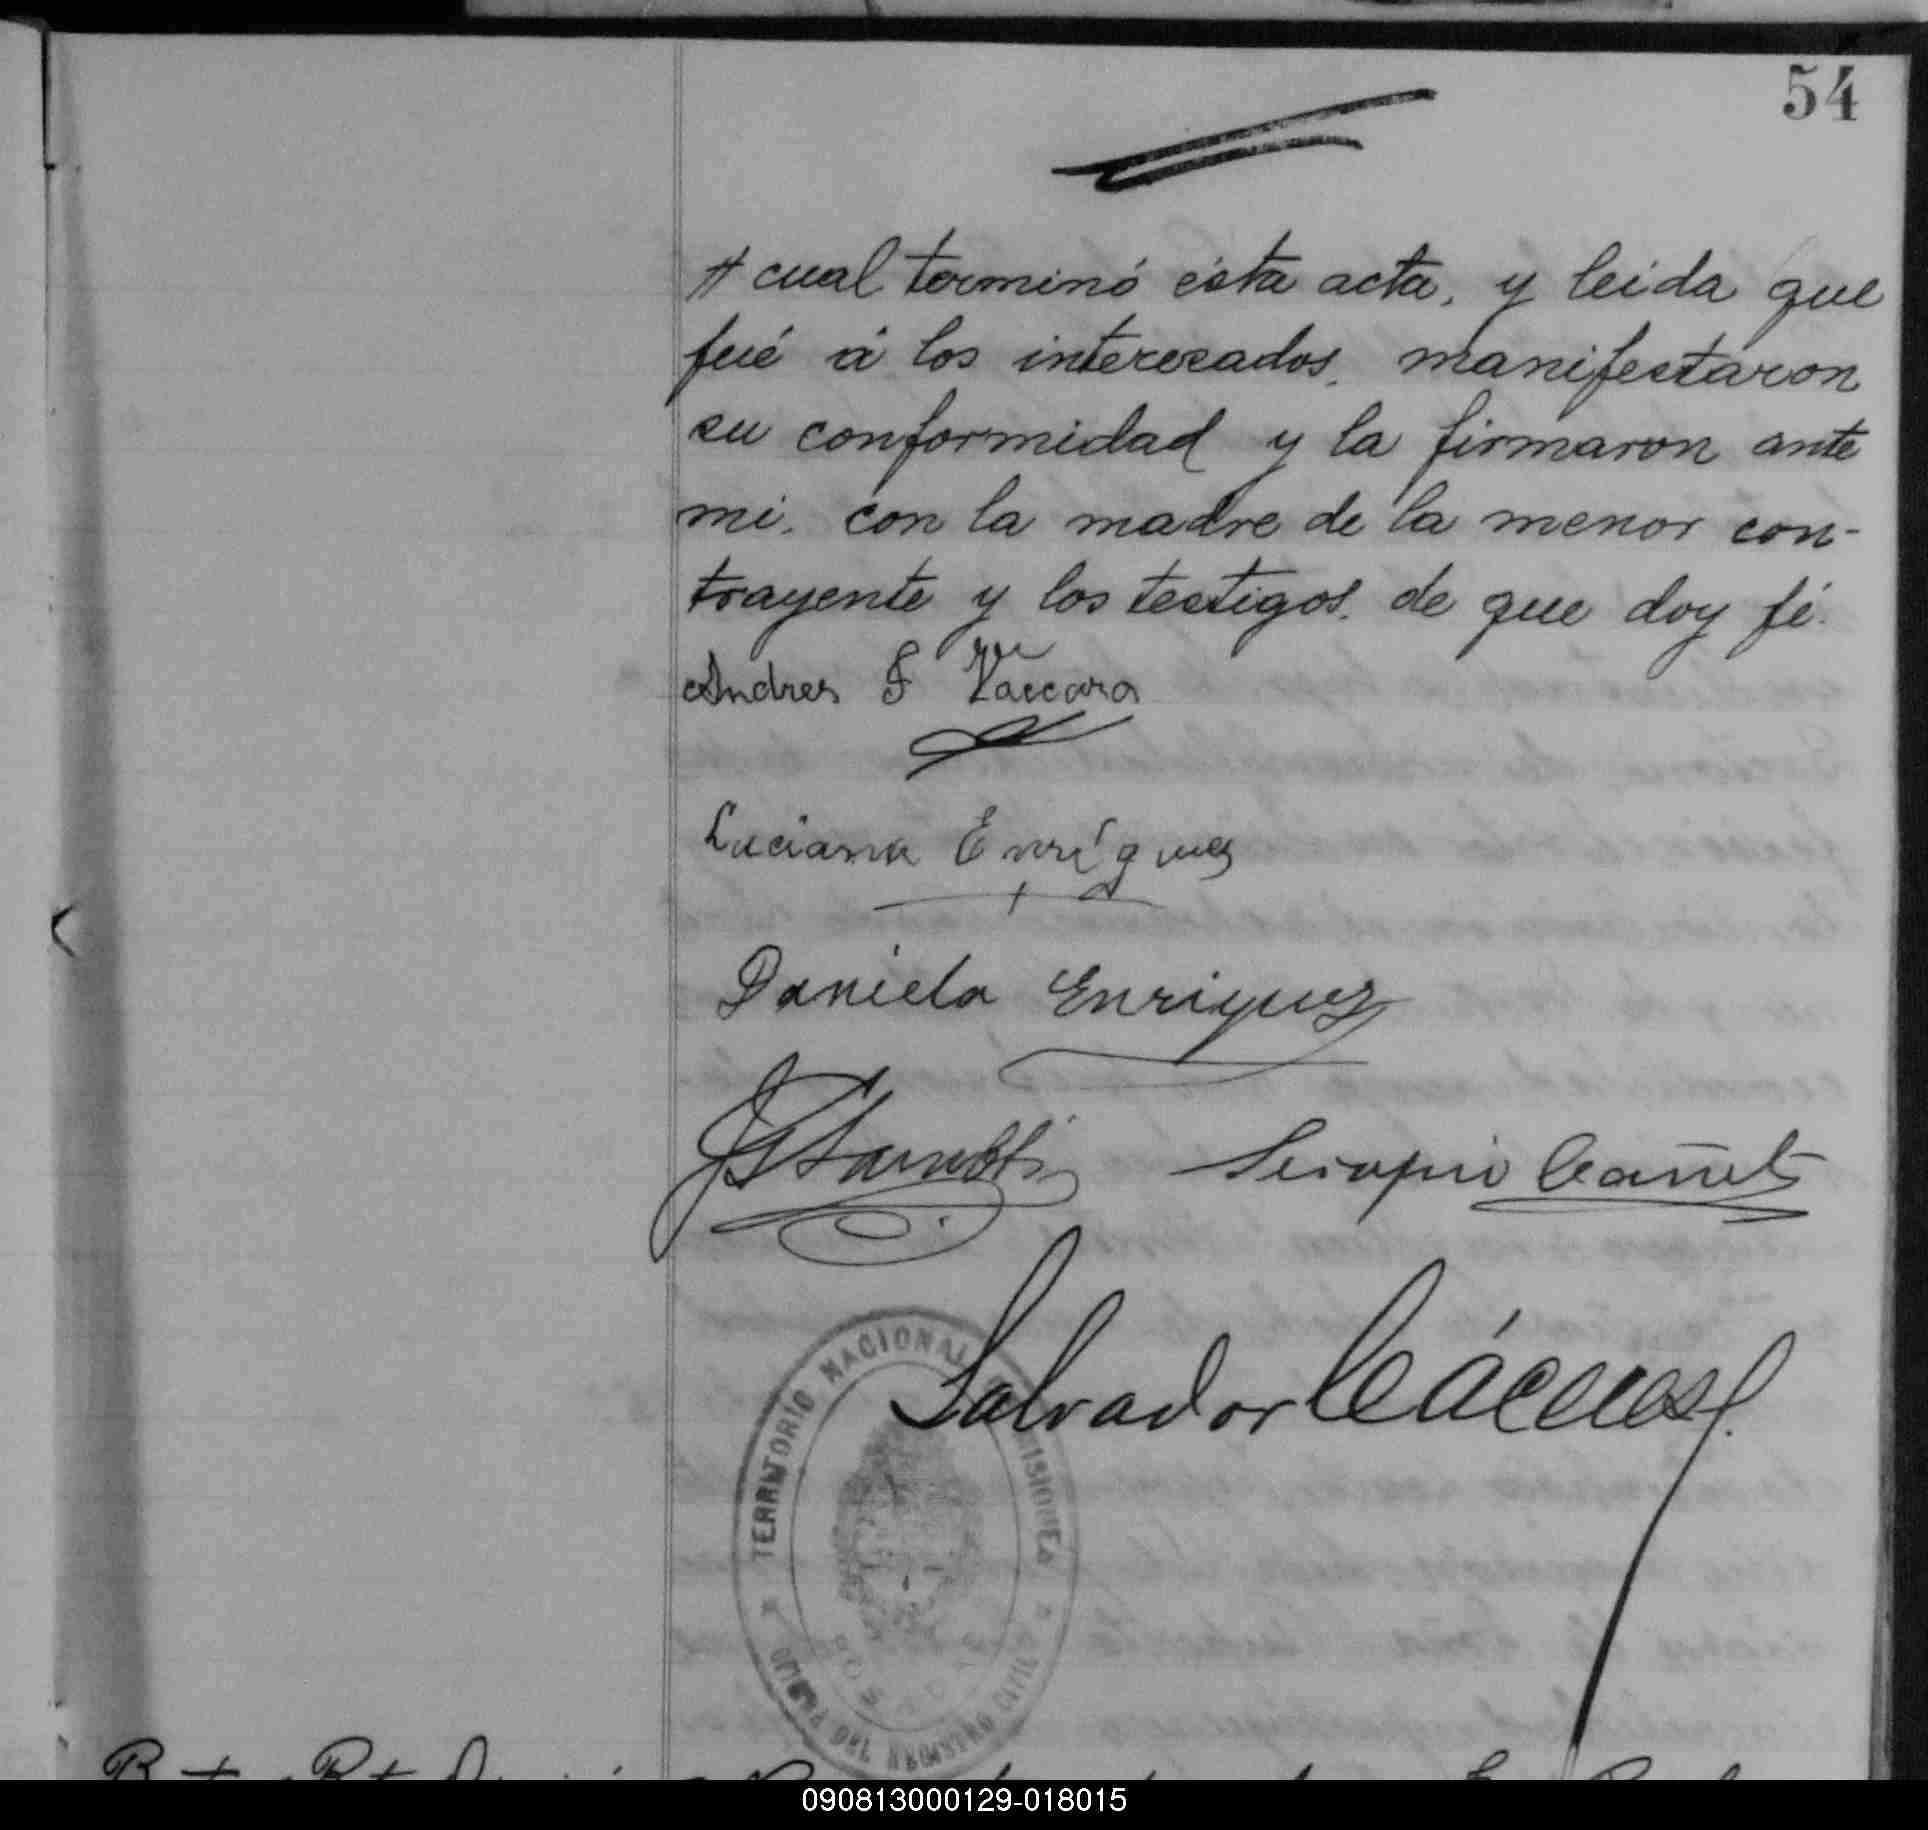 54
cual terminó ésta acta, y leida que
fué á los interesados, manifestaron
su conformidad y la firmaron ante
mi, con la madre de la menor con-
trayente y los testigos, de que doy fé.
Andres F Vaccaro
Luciana Enríquez
Daniela Enriquez
Serapio Cañete
Salvador Cáceres
TERRITORIO NACIONAL MISIONES
OFICINA DEL REGISTRO CIVIL
090813000129-018015